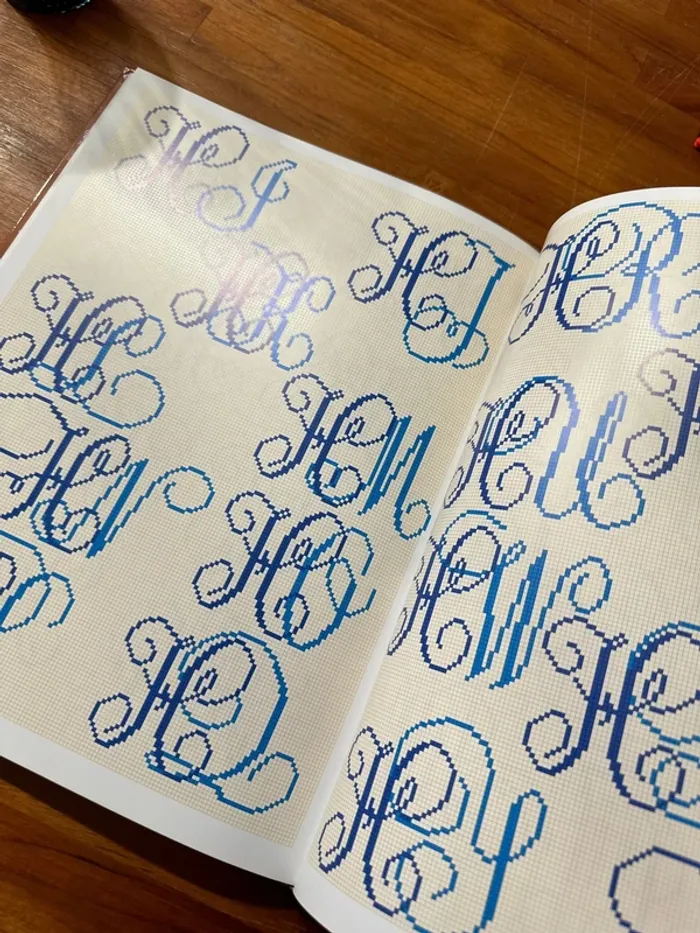 HI
HJ
HK
HL
HM
HN
HO
HQ
HR
HU
HW
HY